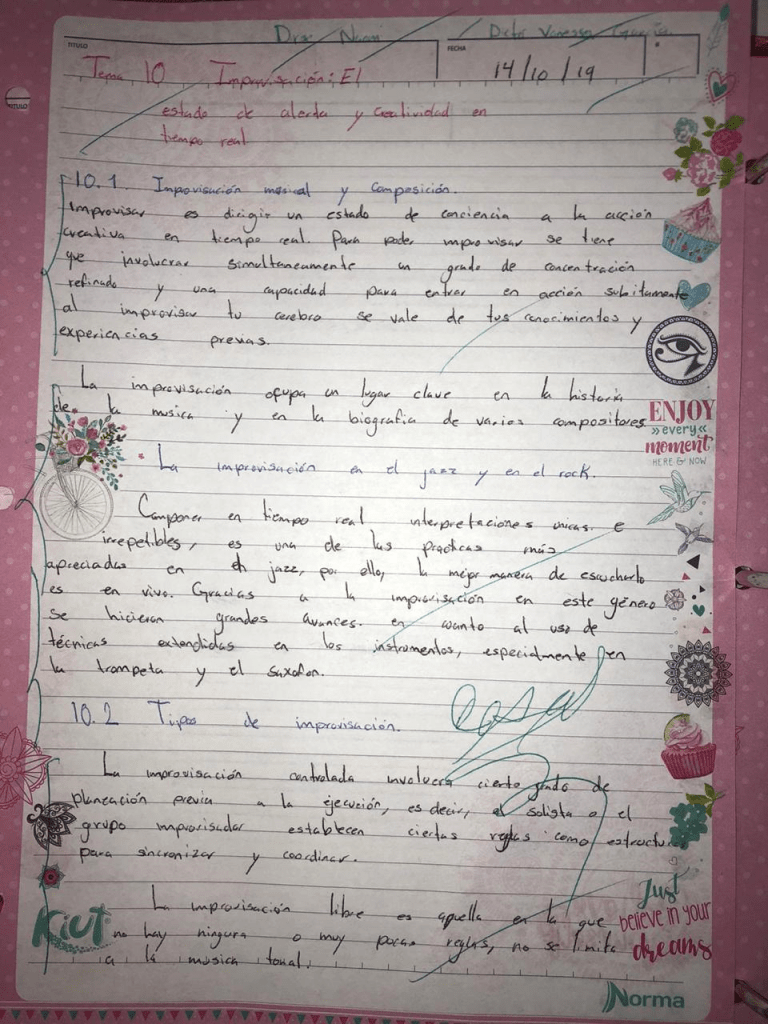 TITULO
Dra. Naomi
Dctor Vanessa García
FECHA
14/10/19
TITULO
Tema 10 Improvisación: El
estado de alerta y creatividad en
tiempo real
10.1. Improvisación musical y Composición.
Improvisar es dirigir un estado de conciencia a la acción
creativa en tiempo real. Para poder improvisar se tiene
que involucrar simultaneamente un grado de concentración
refinado y una capacidad para entrar en acción subitamente
al improvisar tu cerebro se vale de tus conocimientos y
experiencias previas.
La improvisación ocupa un lugar clave en la historia
de la musica y en la biografia de varios compositores
ENJOY
»every«
moment
HERE & NOW
La improvisación en el jazz y en el rock.
Componer en tiempo real interpretaciones unicas e
irrepetibles, es una de las practicas más
apreciadas en el jazz, por ello, la mejor manera de escucharlo
es en vivo. Gracias a la improvisación en este género
se hicieron grandes avances. en cuanto al uso de
técnicas extendidas en los instrumentos, especialmente en
la trompeta y el saxofon.
10.2 Tipos de improvisación.
La improvisación controlada involucra cierto grado de
planeación previa a la ejecución, es decir, el solista o el
grupo improvisador establecen ciertas reglas como estructura
para sincronizar y coordinar.
La improvisación libre es aquella en la que
no hay ninguna o muy pocas reglas, no se limita
a la musica tonal.
Just
believe in your
dreams
Kiut
Norma